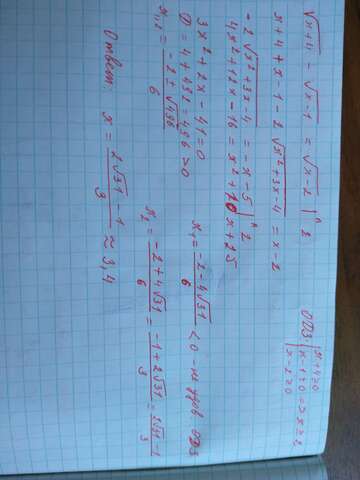 √x+4 − √x−1 = √x−2 |^2
ОДЗ: {x+4≥0
x−1≥0 => x≥2
x−2≥0
x+4+x−1−2√x²+3x−4 = x−2
−2√x²+3x−4 = −x−5 |^2
4x²+12x−16 = x²+10x+25
3x²+2x−41=0
D = 4+492=496>0
x₁,₂ = −2±√496 / 6
x₁ = −2−4√31 / 6 <0 − не удов. ОДЗ
x₂ = −2+4√31 / 6 = −1+2√31 / 3 = 2√31−1 / 3
Ответ: x = 2√31−1 / 3 ≈ 3,4